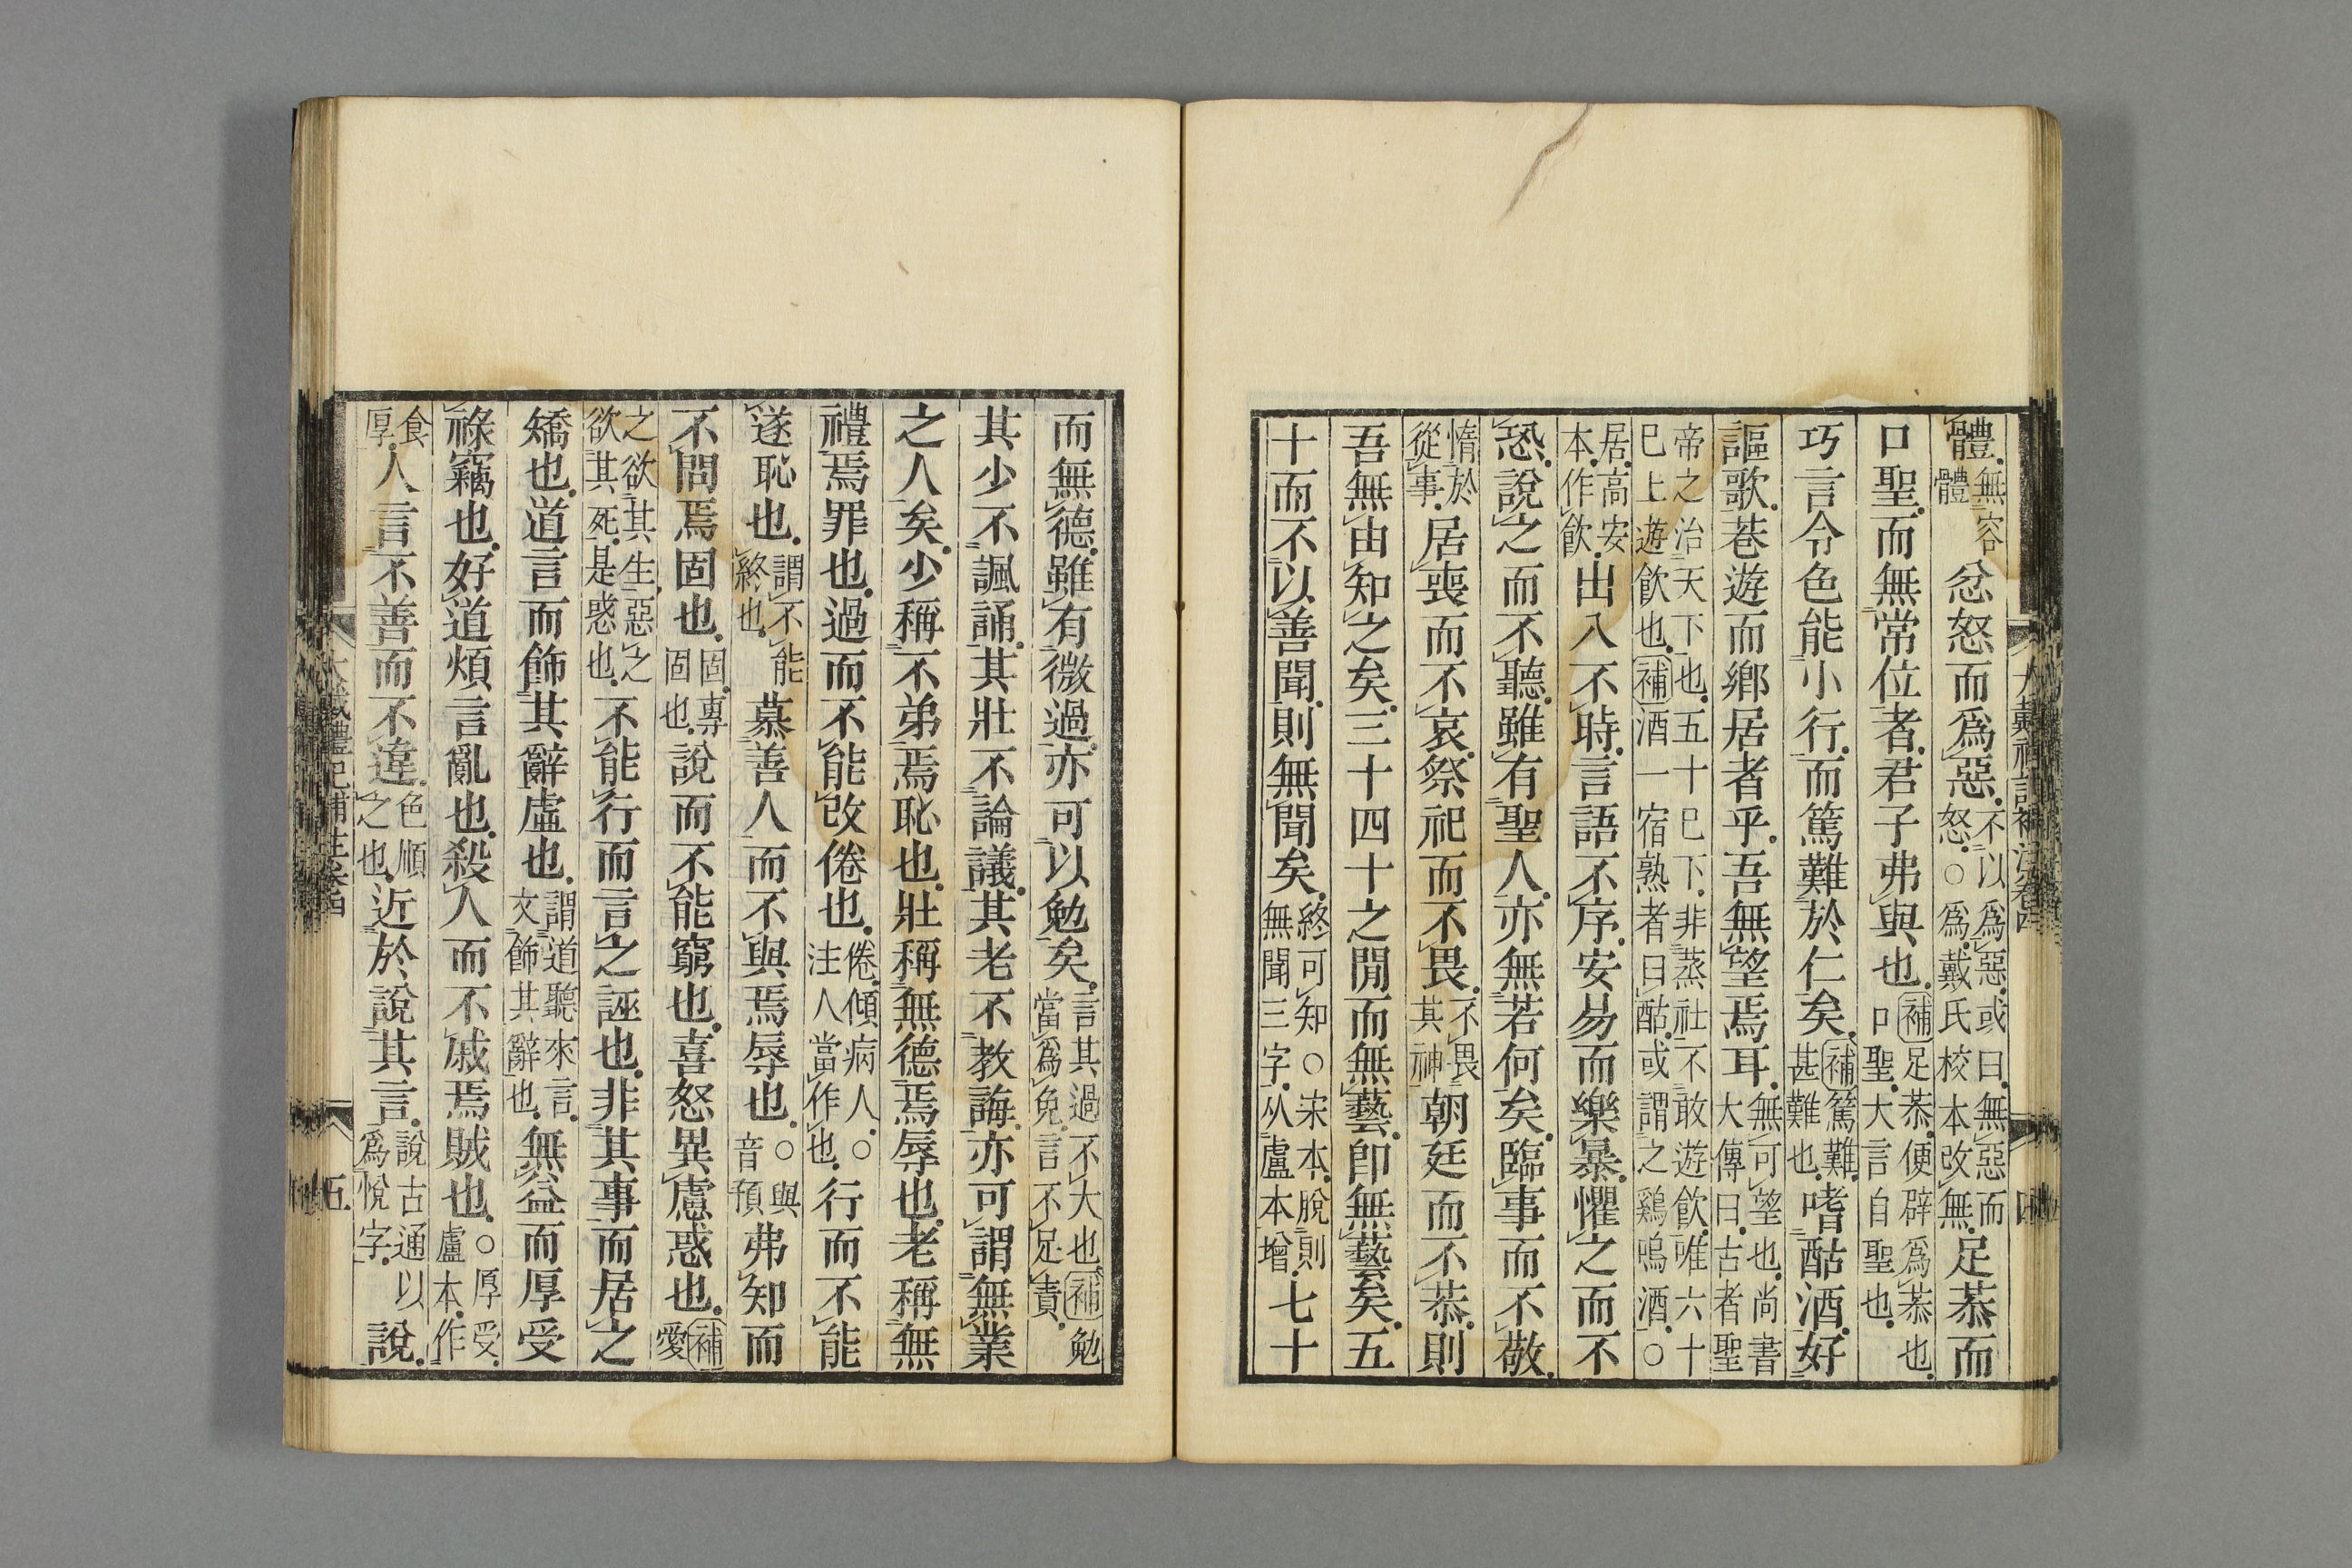 體無容體忿怒而爲惡不以爲惡或曰無惡而怒○爲戴氏校本改無足恭而
口聖而無常位者君子弗與也補足恭便辟爲恭也口聖大言自聖也
巧言令色能小行而篤難於仁矣補篤難甚難也嗜酤酒好
謳歌巷遊而鄉居者乎吾無望焉耳無可望也尚書大傳曰古者聖
帝之治天下也五十已下非蒸社不敢遊飮唯六十已上遊飮也補酒一宿熟者曰酤或謂之鷄鳴酒○
居高安本作飮出入不時言語不序安易而樂暴懼之而不
恐說之而不聽雖有聖人亦無若何矣臨事而不敬
惰於從事居喪而不哀祭祀而不畏不畏其神朝廷而不恭則
吾無由知之矣三十四十之閒而無藝卽無藝矣五
十而不以善聞則無聞矣終可知○宋本脫則無聞三字从盧本增七十
大戴禮記補注卷四
四
而無德雖有微過亦可以勉矣言其過不大也補勉當爲免言不足責
其少不諷誦其壯不論議其老不教誨亦可謂無業
之人矣少稱不弟焉恥也壯稱無德焉辱也老稱無
禮焉罪也過而不能改倦也倦傾病人○注人當作也行而不能
遂恥也謂不能終也慕善人而不與焉辱也○與音預弗知而
不問焉固也固專固也說而不能窮也喜怒異慮惑也補愛
之欲其生惡之欲其死是惑也不能行而言之誣也非其事而居之
矯也道言而飾其辭虛也謂道聽來言文飾其辭也無益而厚受
祿竊也好道煩言亂也殺人而不戚焉賊也○厚受盧本作
食厚人言不善而不違色順之也近於說其言說古通以爲悅字說
大戴禮記補注卷四
五